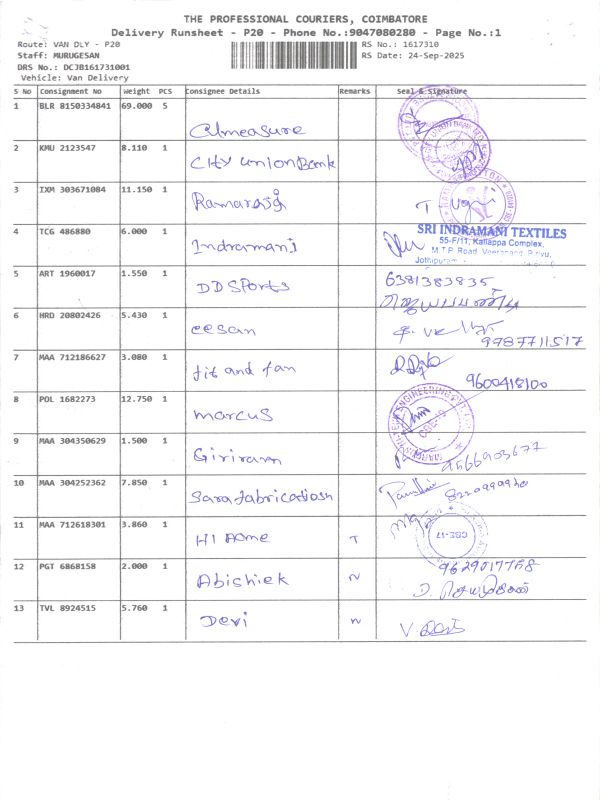 THE PROFESSIONAL COURIERS, COIMBATORE
Delivery Runsheet - P20 - Phone No.:9047080280 - Page No.:1
Route: VAN DLY - P20 RS No.: 1617310
Staff: MURUGESAN RS Date: 24-Sep-2025
DRS No.: DC3B161731001
Vehicle: Van Delivery
S No Consignment No Weight PCS Consignee Details Remarks Seal & Signature
1 BLR 8150334841 69.000 5 Almeasure
2 KMU 2123547 8.110 1 City union Bank
3 IXM 303671084 11.150 1 Ramaraj
4 TCG 486880 6.000 1 Indramani SRI INDRAMANI TEXTILES
55-F/11, Kallappa Complex,
M.T.P. Road,
5 ART 1960017 1.550 1 DD Sports 6381383835
6 HRD 20802426 5.430 1 eesan 9987711517
7 MAA 712186627 3.080 1 fit and fan 9600418100
8 POL 1682273 12.750 1 marcus
9 MAA 304350629 1.500 1 Giriram 9566903677
10 MAA 304252362 7.850 1 Sara fabrication
11 MAA 712618301 3.860 1 HI Aome T CBE-17
12 PGT 6868158 2.000 1 Abishiek N 9629017768
13 TVL 8924515 5.760 1 Devi N